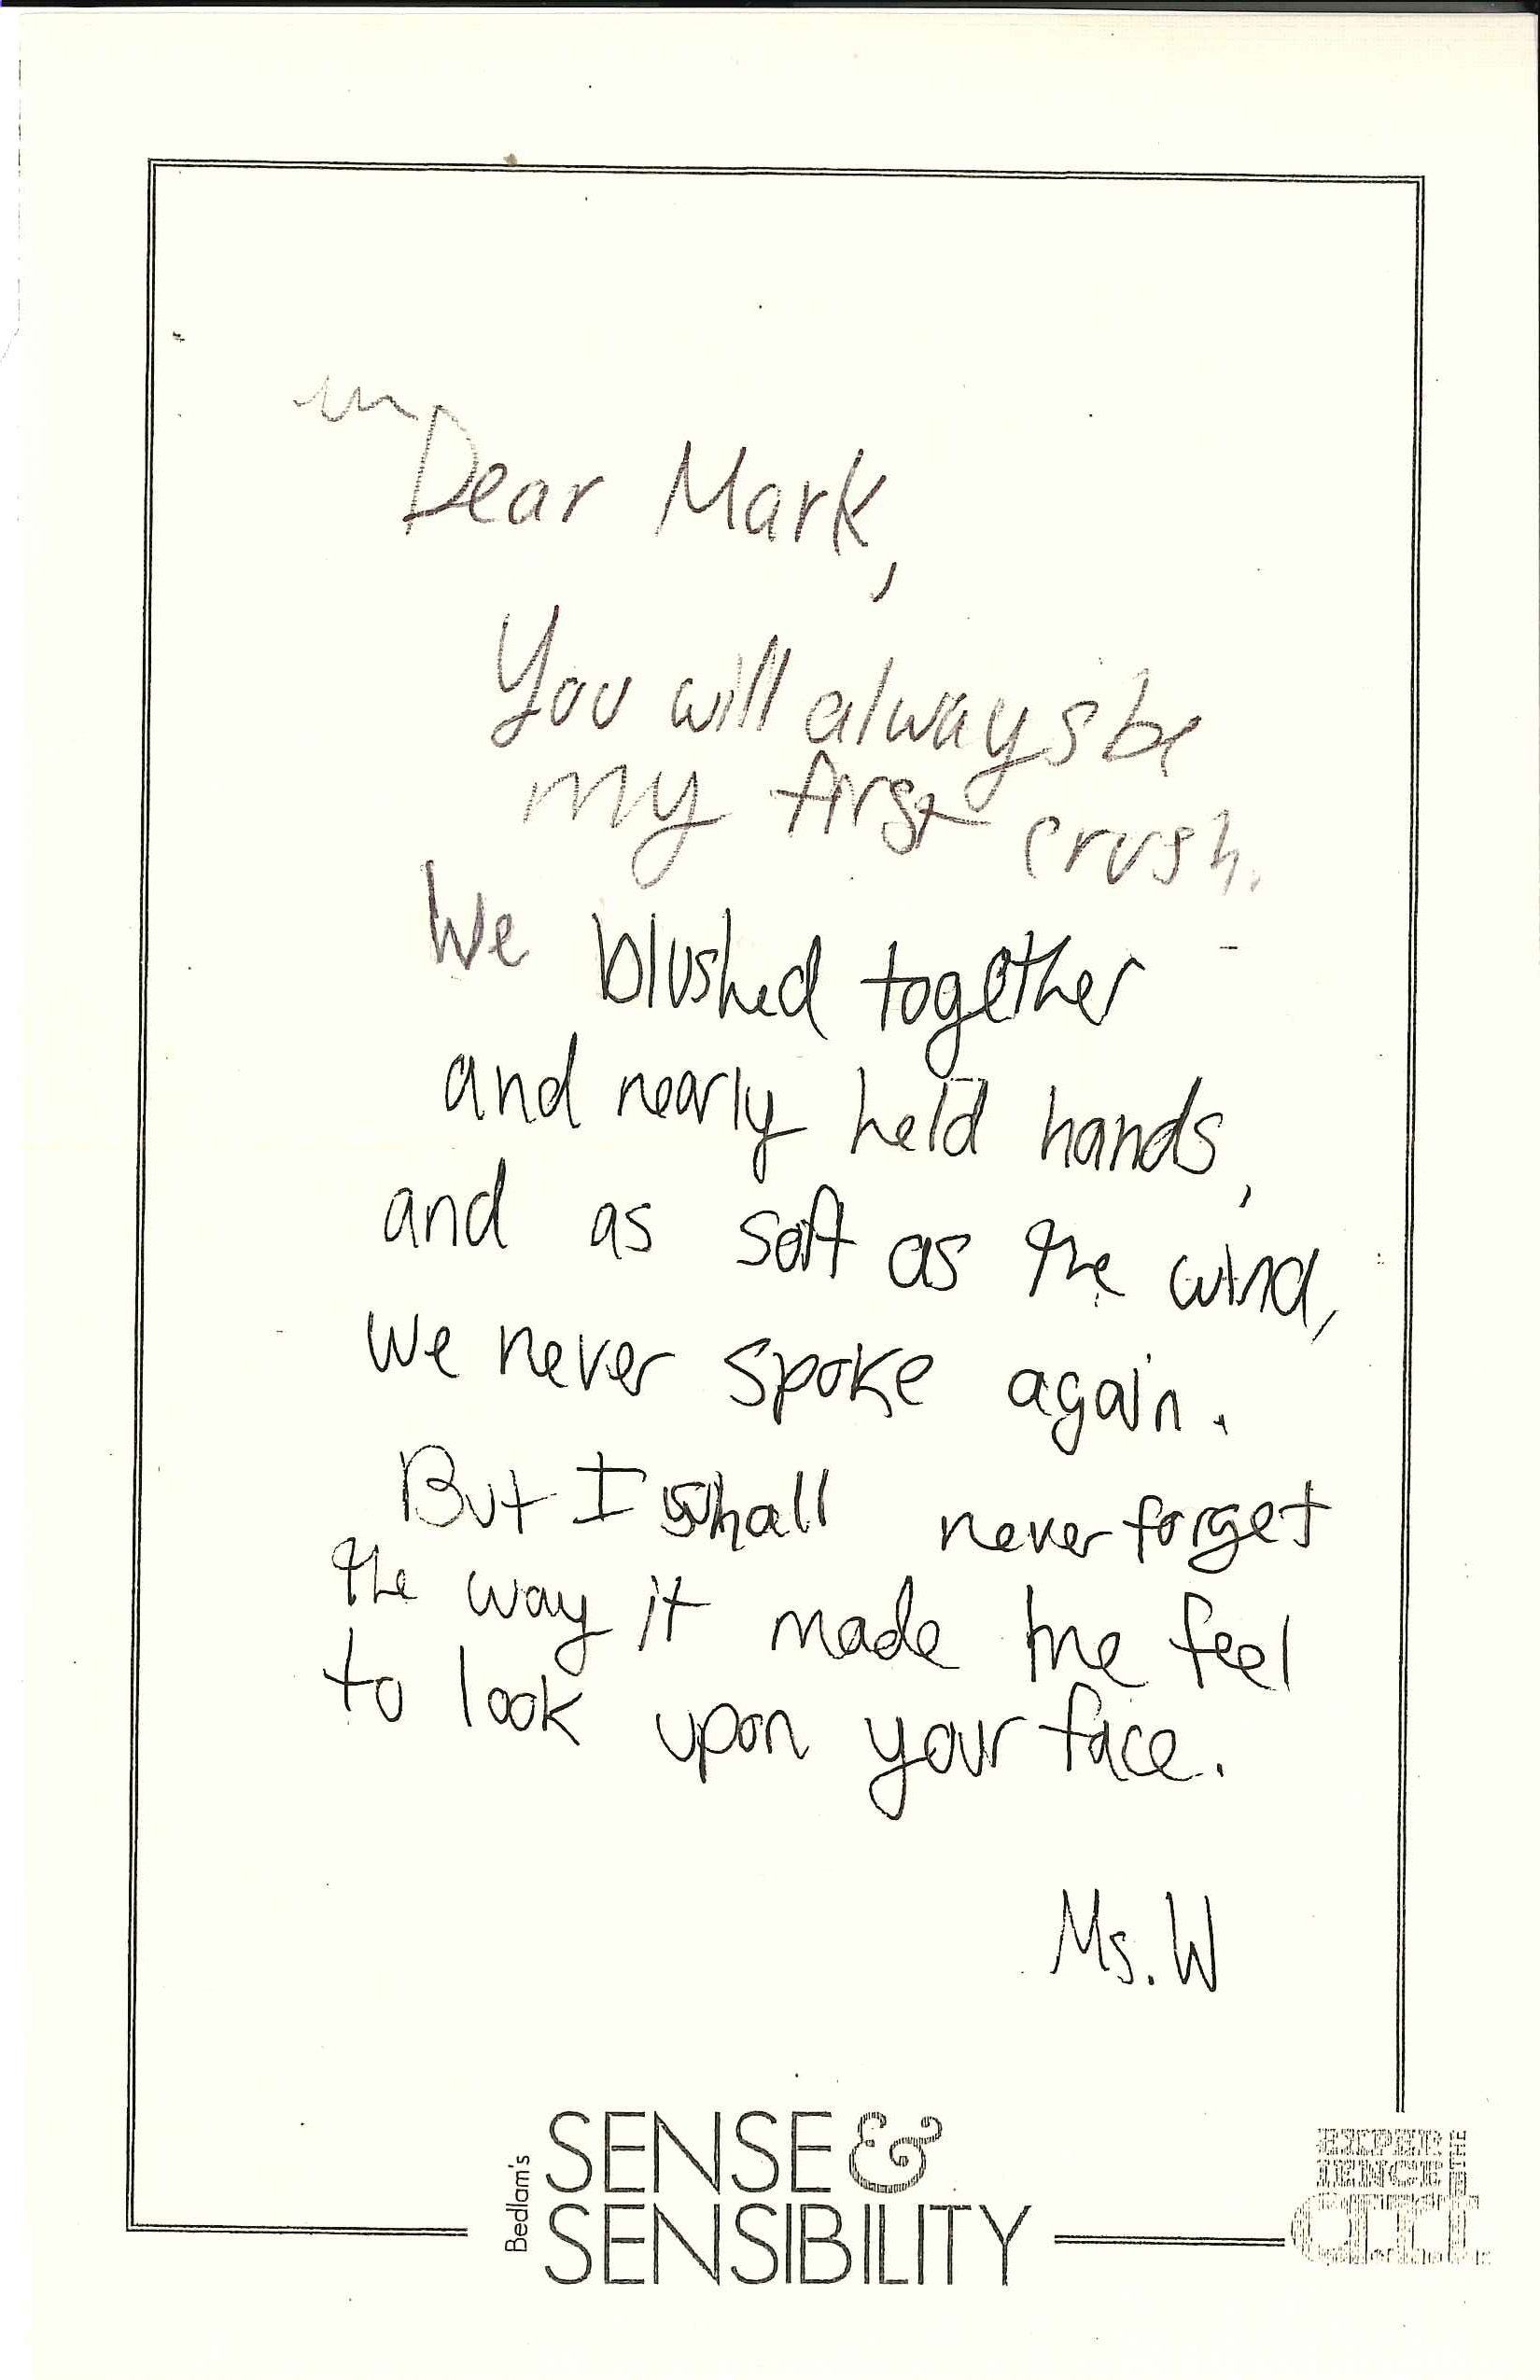 Dear Mark,
You will always be
my first crush.
We blushed together
and nearly held hands,
and as soft as the wind,
we never spoke again.
But I shall never forget
the way it made me feel
to look upon your face.
Ms. W
Bedlam's
SENSE &
SENSIBILITY
EXPER
IENCE THE